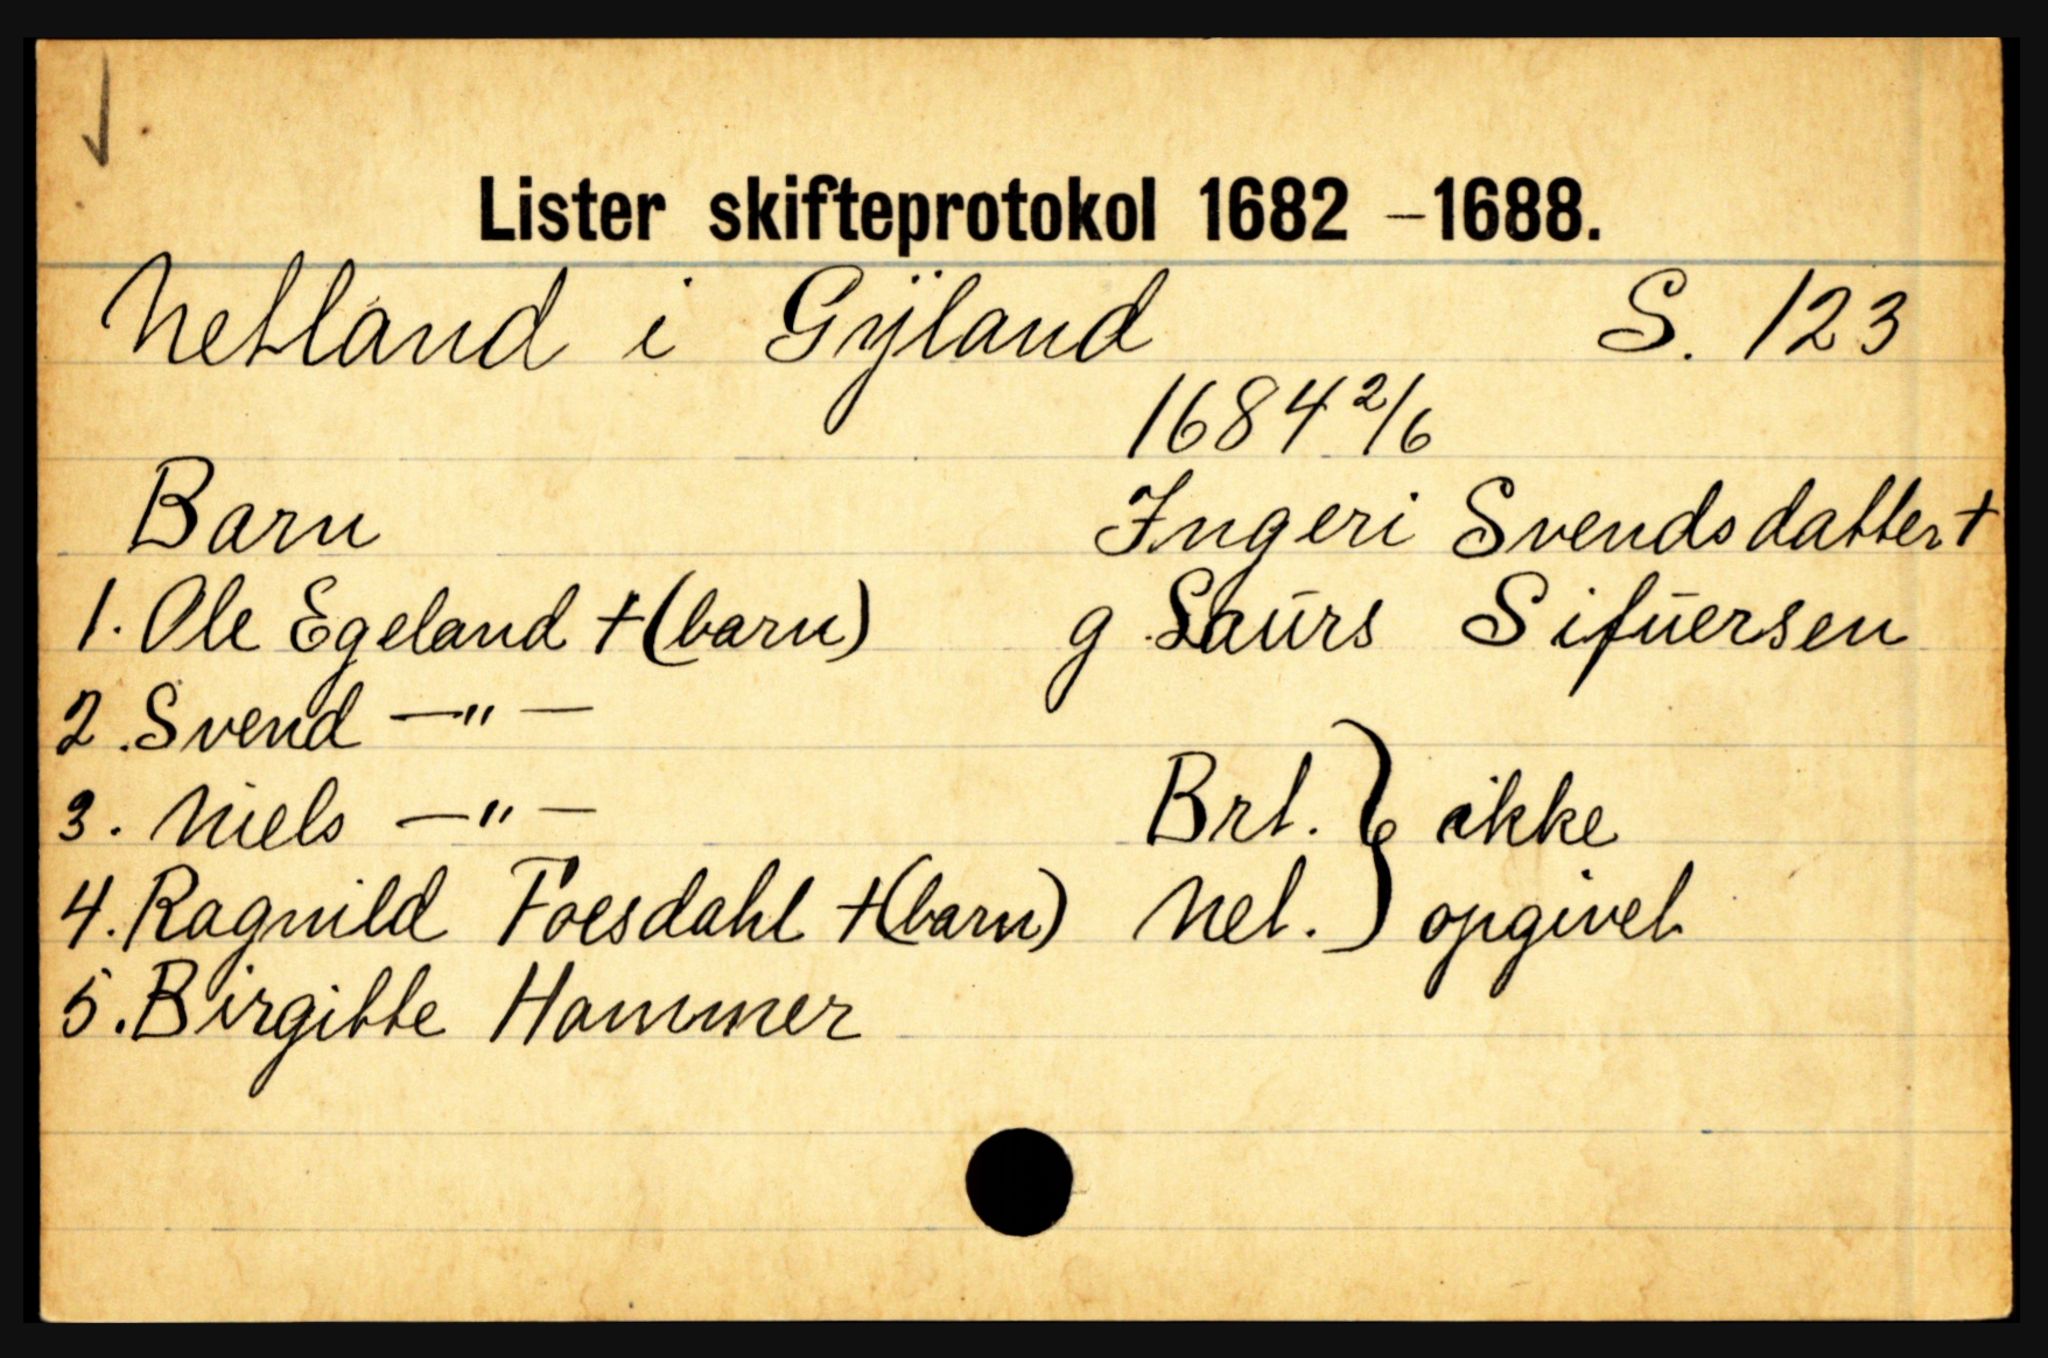 Lister skifteprotokol 1682 - 1688.
Netland i Gÿland S. 123
1684 2/6
Barn Ingeri Svendsdatter +
1. Ole Egeland + (barn) g Laurs Sifuersen
2. Svend —"—
3. Niels —"— Brt. } ikke
4. Ragnild Foesdahl + (barn) Net. } opgivet
5. Birgitte Hammer